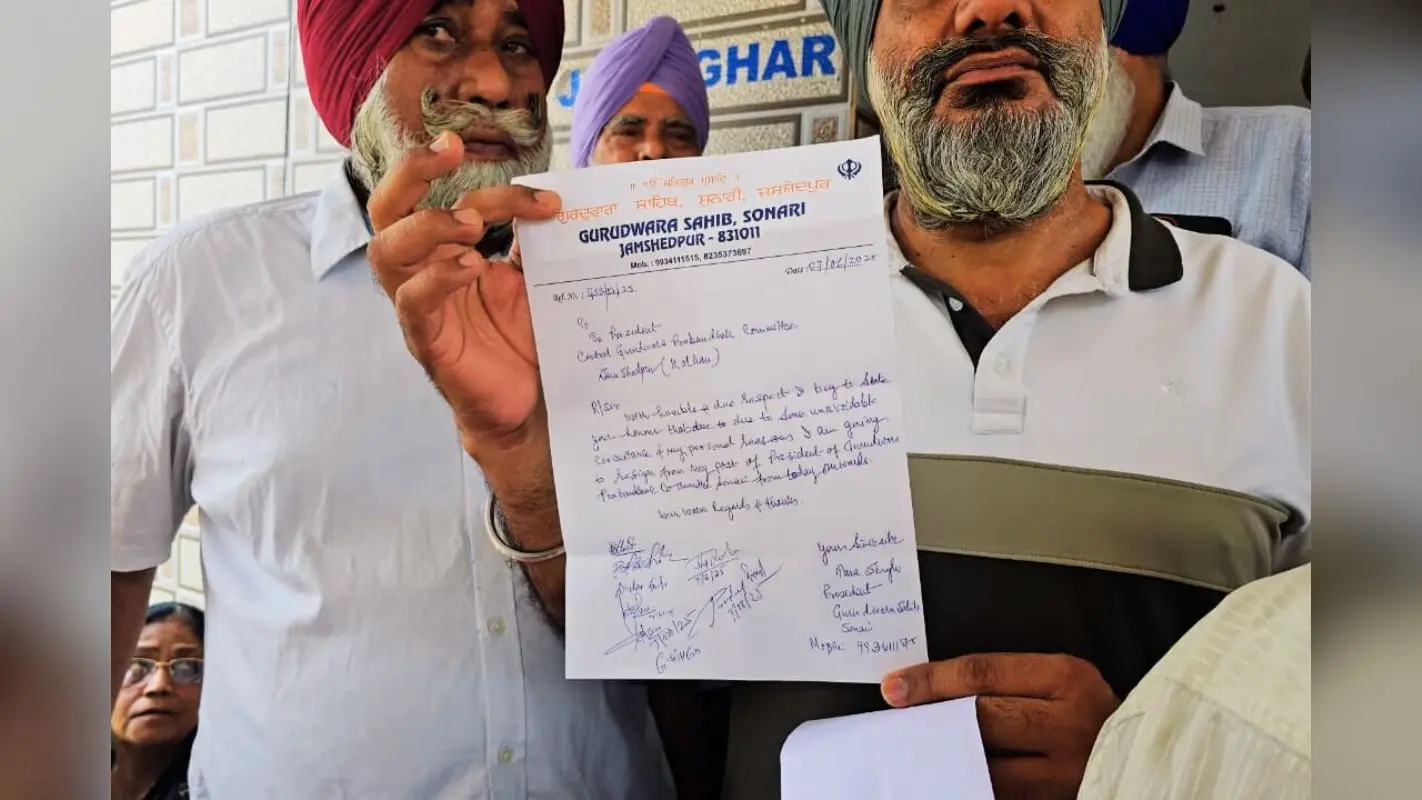 GHAR
॥ ੴ ਸਤਿਗੁਰ ਪ੍ਰਸਾਦਿ ॥
ਗੁਰਦੁਵਾਰਾ ਸਾਹਿਬ, ਸੁਨਾਰੀ, ਜਮਸ਼ੇਦਪੁਰ
GURUDWARA SAHIB, SONARI
JAMSHEDPUR - 831011
Mob. : 9934111515, 8235373697
Ref. No. :
Date : 07/06/2025
To
The President
Central Gurudwara Prabandhak Committee
Jamshedpur (Kolhan)
R/Sir
With humble & due respect I beg to state
your honour that due to due to some unavoidable
circustance & my personal reasons I am going
to resign from my post of President of Gurudwara
Prabandhak Committee Sonari from today onwards.
With warm Regards & thanks.
Your Sincerely
Tara Singh
President
Gurudwara Sahib
Sonari
Mobile: 9934111515
G. SINGH